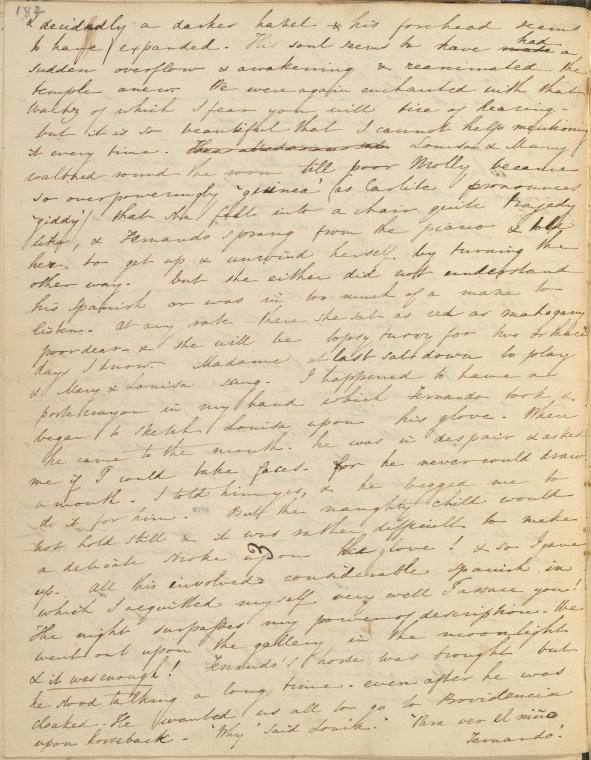 182
& decidedly a darker hazel & his forehead seems
to have expanded. His soul seems to have had a
sudden overflow & awakening & reanimated the
temple anew. We were again enchanted with that
Waltz of which I fear you will tire of hearing-
but it is so beautiful that I cannot help mentioning
it every time. Louisa & Mary
waltzed round the room till poor Molly became
so overpoweringly "guinea" (as Carlito pronounces
'giddy') that she fell into a chair quite tragedy
like, & Fernando sprang from the piano & told
her to get up & unwind herself by turning the
other way. But she either did not understand
his Spanish or was in too much of a maze to
listen. At any rate there she sat as red as mahogany
poor dear. & she will be topsy turvy for two or three
days I know. Madame at last sat down to play
& Mary & Louisa sang. I happened to have a
porte crayon in my hand which Fernando took, &
began to sketch Louisa upon his glove. When
he came to the mouth. he was in despair & asked
me if I could take faces. for he never could draw
a mouth. I told him yes, & he begged me to
do it for him. But the naughty child would
not hold still & it was rather difficult to make
a delicate stroke upon the glove! & so I gave
up. All this involved considerable Spanish in
which I acquitted myself very well I assure you!
The night surpasses my power of description. We
went out upon the gallery in the moonlight
& it was enough! Fernando's horse was brought but
he stood talking a long time- even after he was
cloaked. He wanted us all to go to Providencia
upon horseback- "Why" said Louisa. "Para ver el niño
Fernando!
NYPL